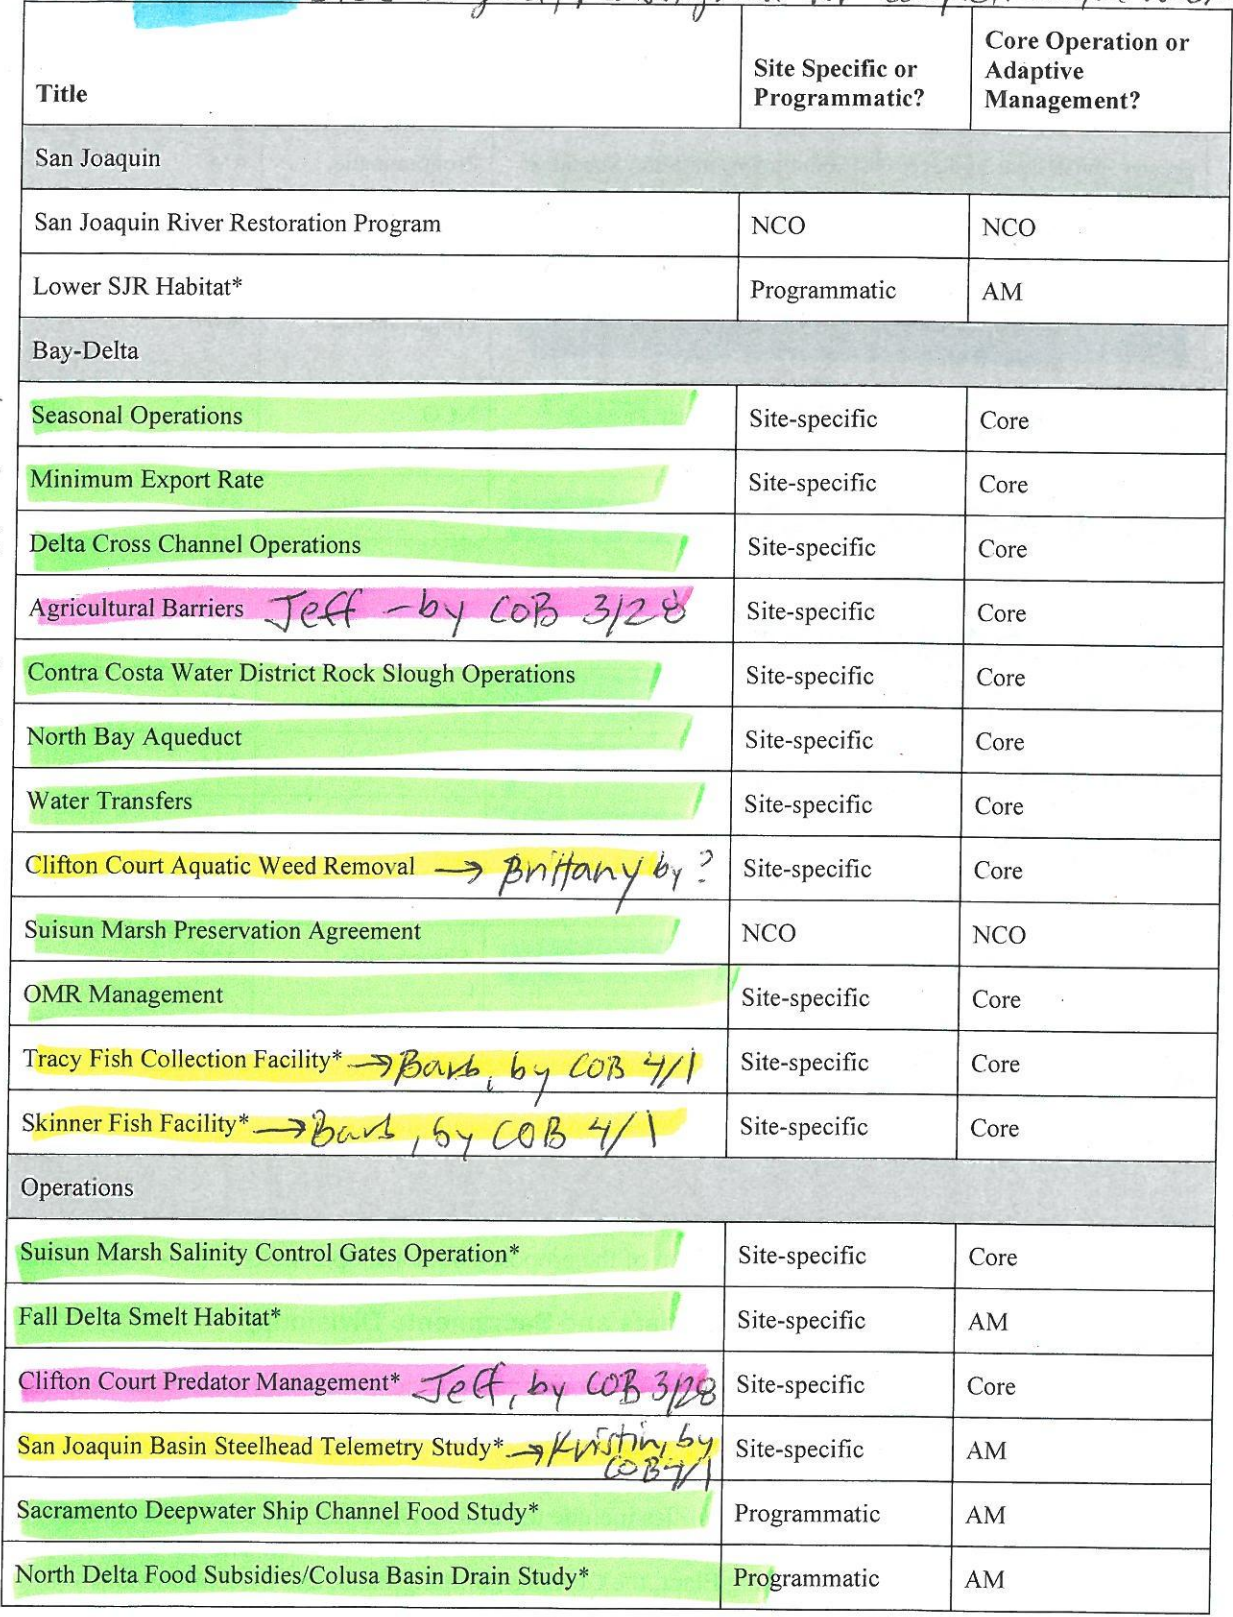 Title
Site Specific or
Programmatic?
Core Operation or
Adaptive
Management?
San Joaquin
San Joaquin River Restoration Program NCO NCO
Lower SJR Habitat* Programmatic AM
Bay-Delta
Seasonal Operations Site-specific Core
Minimum Export Rate Site-specific Core
Delta Cross Channel Operations Site-specific Core
Agricultural Barriers Jeff - by COB 3/28 Site-specific Core
Contra Costa Water District Rock Slough Operations Site-specific Core
North Bay Aqueduct Site-specific Core
Water Transfers Site-specific Core
Clifton Court Aquatic Weed Removal → Brittany by ? Site-specific Core
Suisun Marsh Preservation Agreement NCO NCO
OMR Management Site-specific Core
Tracy Fish Collection Facility* → Barb, by COB 4/1 Site-specific Core
Skinner Fish Facility* → Barb, by COB 4/1 Site-specific Core
Operations
Suisun Marsh Salinity Control Gates Operation* Site-specific Core
Fall Delta Smelt Habitat* Site-specific AM
Clifton Court Predator Management* Jeff, by COB 3/28 Site-specific Core
San Joaquin Basin Steelhead Telemetry Study* → Kristin, by Site-specific AM
COB 4/1
Sacramento Deepwater Ship Channel Food Study* Programmatic AM
North Delta Food Subsidies/Colusa Basin Drain Study* Programmatic AM